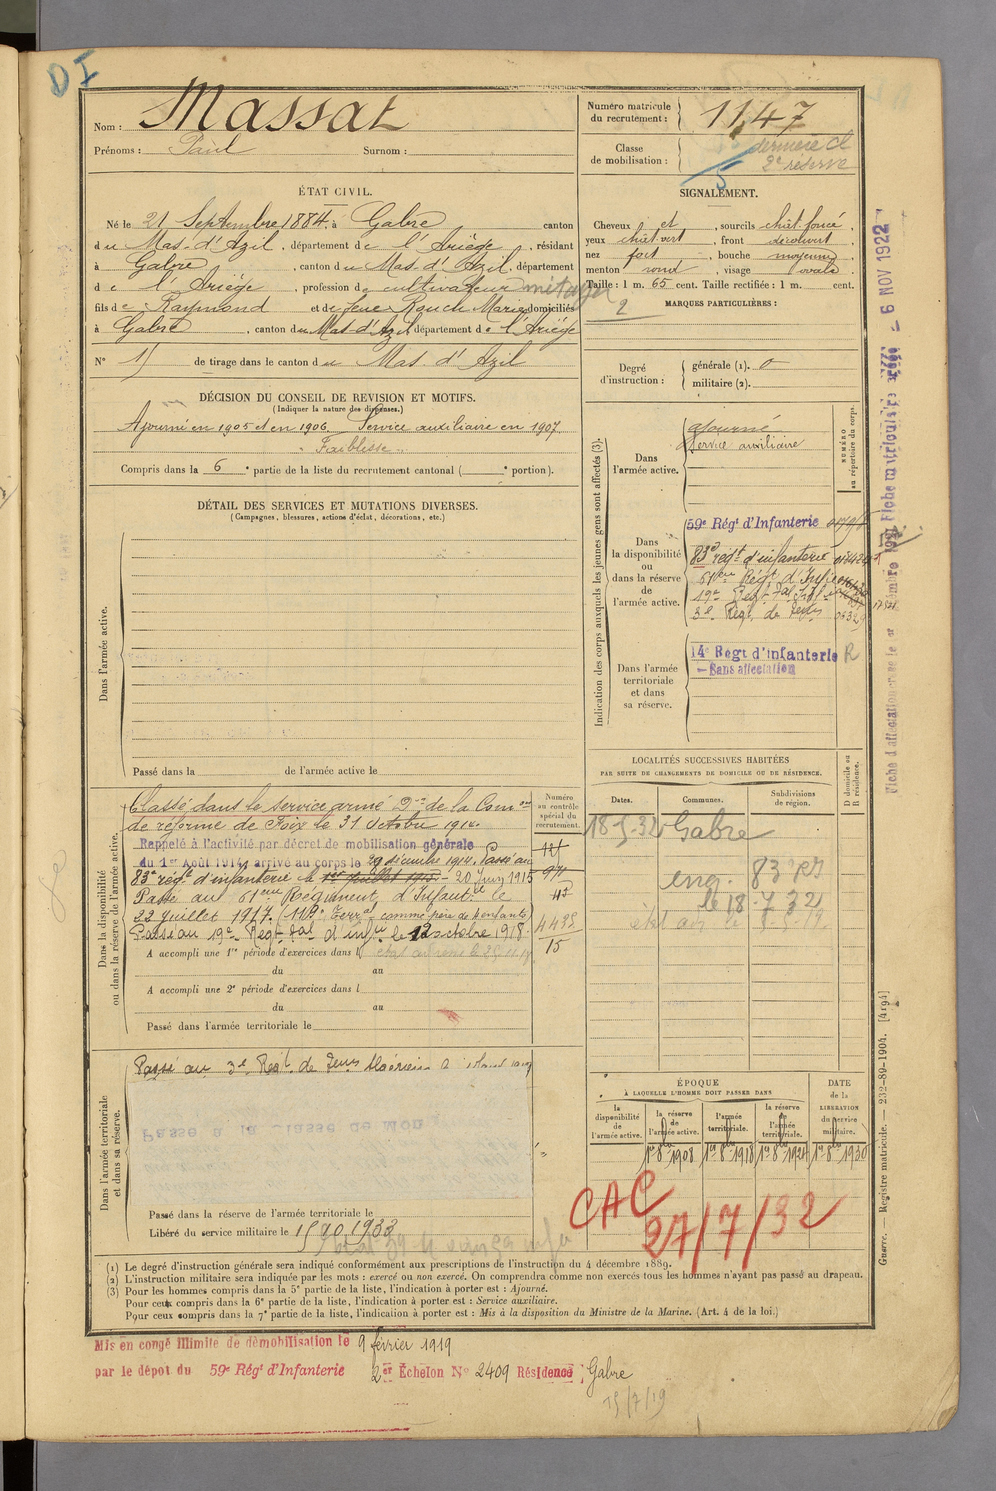 D I
Nom : Massat
Prénoms : Paul Surnom :
Numéro matricule
du recrutement : 1147
Classe
de mobilisation :
dernière Cl
2e réserve
5
ÉTAT CIVIL.
Né le 21 Septembre 1884, à Gabre canton
du Mas-d'Azil, département de l'Ariège, résidant
à Gabre, canton du Mas-d'Azil, département
de l'Ariège, profession de cultivateur métayer
fils de Raymond et de feue Rouch Marie domiciliés
à Gabre, canton du Mas-d'Azil, département de l'Ariège
N° 15 de tirage dans le canton du Mas-d'Azil
SIGNALEMENT.
Cheveux et, sourcils chât foncé,
yeux chât-vert, front découvert,
nez fort, bouche moyenne,
menton rond, visage ovale.
Taille : 1 m. 65 cent. Taille rectifiée : 1 m. cent.
MARQUES PARTICULIÈRES :
2
Degré
d'instruction :
générale (1). 0
militaire (2).
DÉCISION DU CONSEIL DE REVISION ET MOTIFS.
(Indiquer la nature des dispenses.)
Ajourné en 1905 et en 1906. Service auxiliaire en 1907
"Faiblesse"
Compris dans la 6e partie de la liste du recrutement cantonal ( e portion).
DÉTAIL DES SERVICES ET MUTATIONS DIVERSES.
(Campagnes, blessures, actions d'éclat, décorations, etc.)
Dans l'armée active.
Passé dans la de l'armée active le
Indication des corps auxquels les jeunes gens sont affectés (3).
NUMÉRO
au répertoire du corps.
Dans
l'armée active.
ajourné
Service auxiliaire
Dans
la disponibilité
ou
dans la réserve
de
l'armée active.
59e Régt d'Infanterie
83e régt d'infanterie
61eme Régt d'Infie
19e Régt
3e Régt de
Dans l'armée
territoriale
et dans
sa réserve.
14e Régt d'Infanterie R
Sans affectation
Dans la disponibilité
ou dans la réserve de l'armée active.
Numéro
au contrôle
spécial du
recrutement.
Classé dans le service armé Don de la Comon
de réforme de Foix le 31 Octobre 1914.
Rappelé à l'activité par décret de mobilisation générale
du 1er Août 1914 arrivé au corps le 29 décembre 1914. Passé au
83e régt d'infanterie le 1er Juillet 1915 - 20 Juin 1915
Passé au 61eme Régiment d'Infantie le
22 juillet 1917. (119e Terral comme père de 3 enfants)
Passé au 19e Régt d'infie le 12 octobre 1918.
A accompli une 1re période d'exercices dans l
du au
A accompli une 2e période d'exercices dans l
du au
Passé dans l'armée territoriale le
Dans l'armée territoriale
et dans sa réserve.
Passé au 3e Régt de
Passé dans la réserve de l'armée territoriale le
Libéré du service militaire le 15 1933
LOCALITÉS SUCCESSIVES HABITÉES
PAR SUITE DE CHANGEMENTS DE DOMICILE OU DE RÉSIDENCE.
Dates. Communes. Subdivisions
de région.
D domicile ou
R résidence.
18-5-32 Gabre
enq. 83
le 18-7 32
ÉPOQUE
À LAQUELLE L'HOMME DOIT PASSER DANS
DATE
de la
LIBÉRATION
du service
militaire.
la
disponibilité
de
l'armée active.
la réserve
de
l'armée active.
l'armée
territoriale.
la réserve
de
l'armée
territoriale.
1er 8bre 1908 1er 8bre 1918 1er 8bre 1924 1er 8bre 1930
CAC
27/7/32
(1) Le degré d'instruction générale sera indiqué conformément aux prescriptions de l'instruction du 4 décembre 1889.
(2) L'instruction militaire sera indiquée par les mots : exercé ou non exercé. On comprendra comme non exercés tous les hommes n'ayant pas passé au drapeau.
(3) Pour les hommes compris dans la 5e partie de la liste, l'indication à porter est : Ajourné.
Pour ceux compris dans la 6e partie de la liste, l'indication à porter est : Service auxiliaire.
Pour ceux compris dans la 7e partie de la liste, l'indication à porter est : Mis à la disposition du Ministre de la Marine. (Art. 4 de la loi.)
Mis en congé illimité de démobilisation le 9 février 1919
par le dépôt du 59e Régt d'Infanterie 2er Échelon N° 2409 Résidence : Gabre
15/7/19
Guerre. — Registre matricule. — 232-89-1904. [4194]
6 NOV 1922